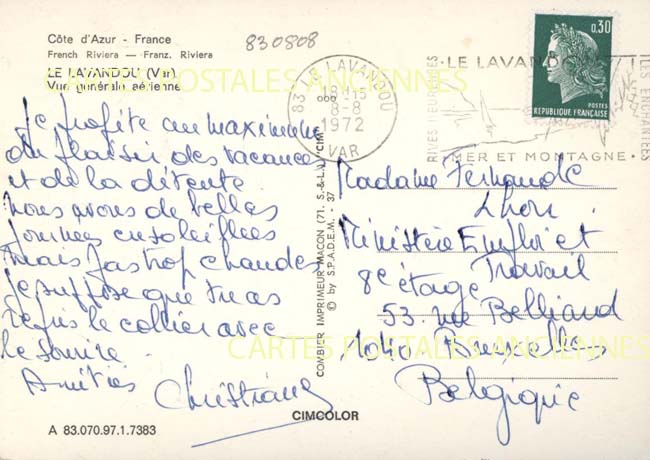 Côte d'Azur - France
French Riviera — Franz. Riviera
LE LAVANDOU (Var)
Vue générale aérienne
830808
CARTES POSTALES ANCIENNES
83 LE LAVANDOU
18H15
8-8
1972
VAR
RIVES HEUREUSES
·LE LAVANDOU
MER ET MONTAGNE·
ILES ENCHANTEES
0,30
POSTES
REPUBLIQUE FRANÇAISE
Je profite au maximum
du plaisir des vacances
et de la détente.
Nous avons de belles
journées ensoleillées
mais pas trop chaudes
Je suppose que tu as
repris le collier avec
le sourire.
Amitiés Christiane
COMBIER IMPRIMEUR MACON (71. S.-&-L.) "CIM"
© by S.P.A.D.E.M. - 37
Madame Fernande
Ministère Emploi et
Travail
8e étage
53. rue Belliard
1040 Bruxelles
Belgique
CARTES POSTALES ANCIENNES
CIMCOLOR
A 83.070.97.1.7383